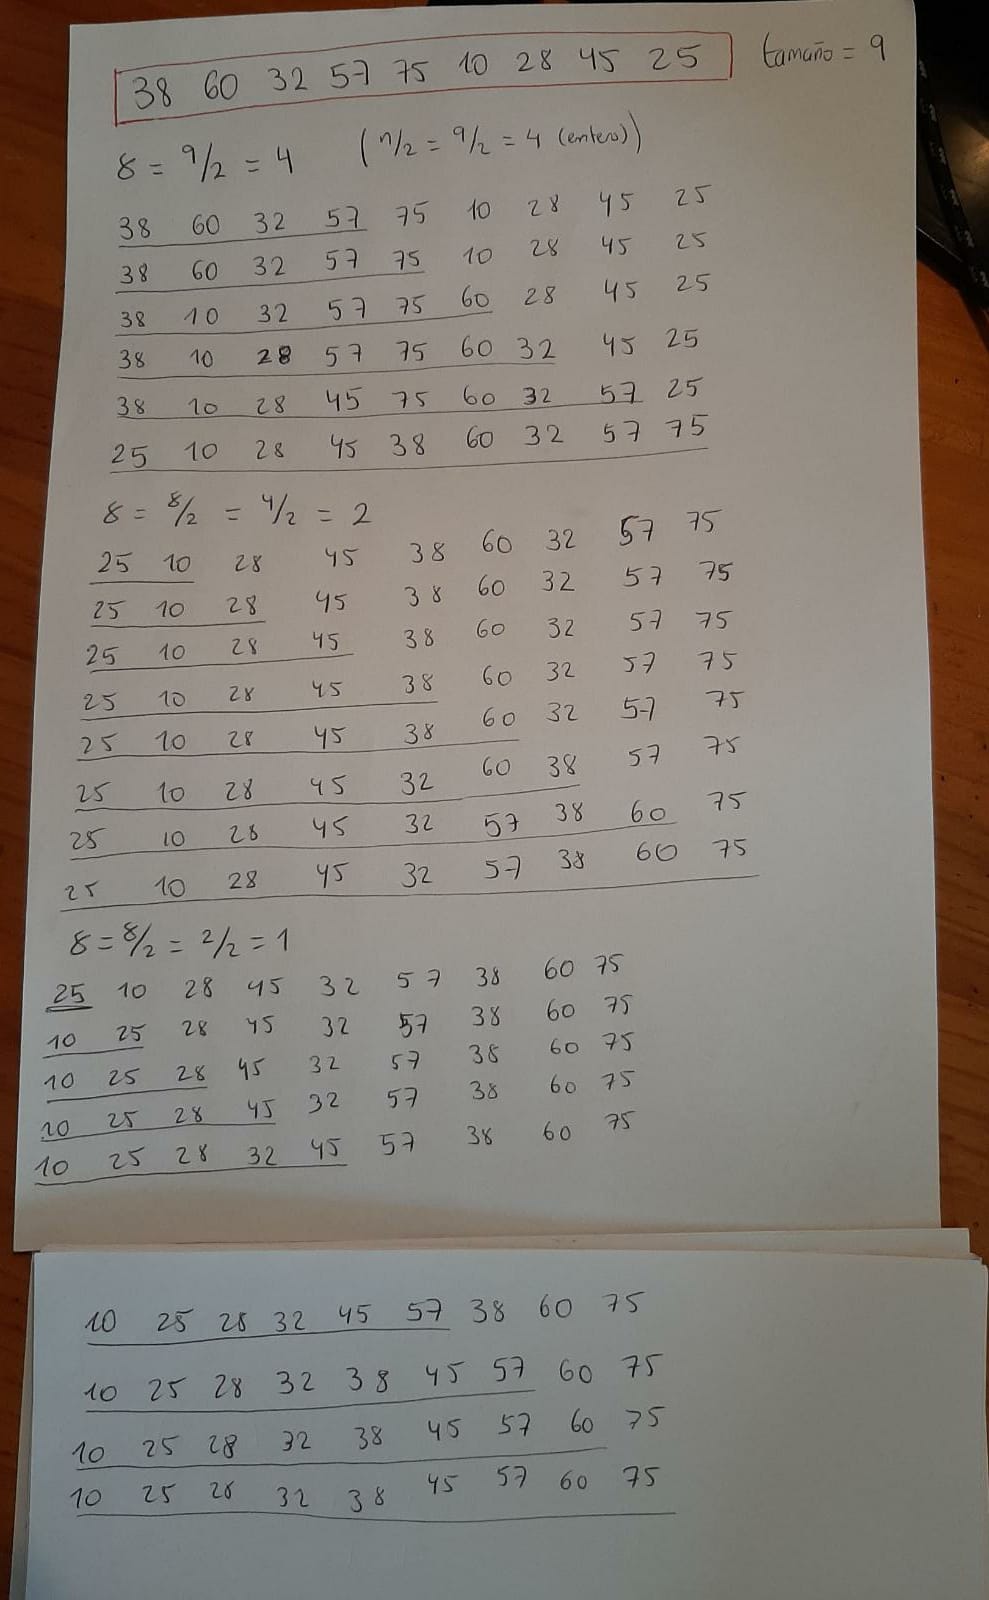 38 60 32 57 75 10 28 45 25 tamaño = 9
8 = 9/2 = 4 (n/2 = 9/2 = 4 (entero))
38 60 32 57 75 10 28 45 25
38 60 32 57 75 10 28 45 25
38 10 32 57 75 60 28 45 25
38 10 28 57 75 60 32 45 25
38 10 28 45 75 60 32 57 25
25 10 28 45 38 60 32 57 75
8 = 8/2 = 4/2 = 2
25 10 28 45 38 60 32 57 75
25 10 28 45 38 60 32 57 75
25 10 28 45 38 60 32 57 75
25 10 28 45 38 60 32 57 75
25 10 28 45 38 60 32 57 75
25 10 28 45 32 60 38 57 75
25 10 28 45 32 57 38 60 75
25 10 28 45 32 57 38 60 75
8 = 8/2 = 2/2 = 1
25 10 28 45 32 57 38 60 75
10 25 28 45 32 57 38 60 75
10 25 28 45 32 57 38 60 75
10 25 28 45 32 57 38 60 75
10 25 28 32 45 57 38 60 75
10 25 28 32 45 57 38 60 75
10 25 28 32 38 45 57 60 75
10 25 28 32 38 45 57 60 75
10 25 28 32 38 45 57 60 75